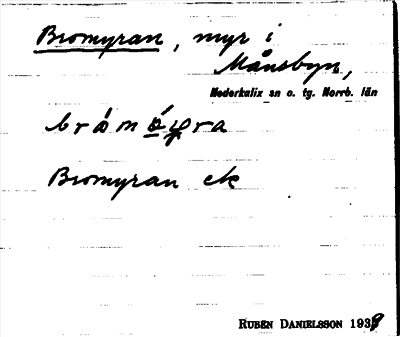 Bromyran, myr i
Månsbyn,
Nederkalix sn o. tg. Norrb. län
Bromyran ek
RUBEN DANIELSSON 1938